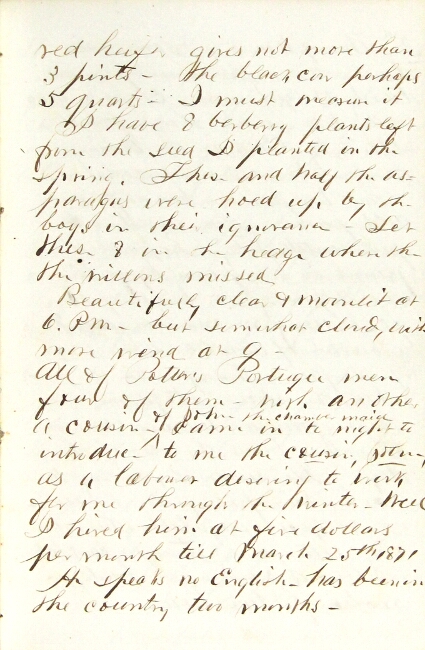 red heifer gives not more than
3 pints - the black cow perhaps
5 quarts - I must measure it
I have 8 berberry plants left
from the seed I planted in the
spring. This - and half the as-
paragus were hoed up by the
boys in their ignorance - Set
these 8 in the hedge where the
the willows missed
Beautifully clear & moonlit at
6. P.M. - but somewhat cloudy with
more wind at 9 -
All of Potter's Portugee men
four of them - with another
a cousin of John the chamber maid
- came in to night to
introduce - to me the cousin, John,
as a labourer desiring to work
for me through the winter - Well
I hired him at five dollars
per month till March 25th 1871
He speaks no English - has been in
the country two months -